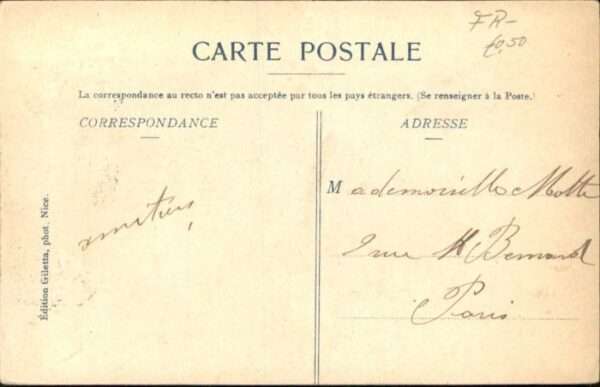 FR-
£0,50
CARTE POSTALE
La correspondance au recto n'est pas acceptée par tous les pays étrangers. (Se renseigner à la Poste.)
CORRESPONDANCE
ADRESSE
Édition Giletta, phot. Nice.
amitiés
Mademoiselle Motte
rue St Bernard
Paris